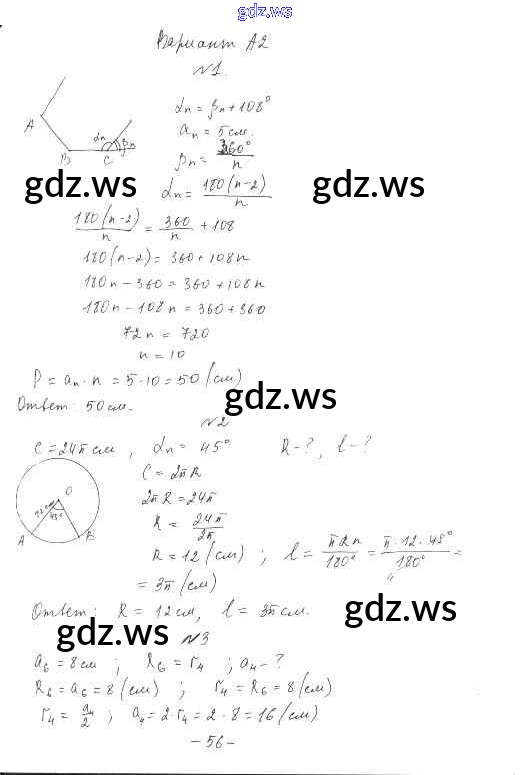 gdz.ws
Вариант А2
№1.
αn = βn + 108°
A
an = 5 см.
αn βn
B C
βn = 360° / n
gdz.ws gdz.ws
αn = 180(n-2) / n
180(n-2) / n = 360 / n + 108
180(n-2) = 360 + 108n
180n - 360 = 360 + 108n
180n - 108n = 360 + 360
72n = 720
n = 10
P = an · n = 5 · 10 = 50 (см)
gdz.ws
Ответ: 50 см.
№2
C = 24π см, αn = 45° R - ?, l - ?
C = 2πR
O
2πR = 24π
45°
R = 24π / 2π
A B
R = 12 (см); l = πRn / 180° = π · 12 · 45° / 180° =
4
= 3π (см)
Ответ: R = 12 см, l = 3π см.
gdz.ws gdz.ws
№3
a6 = 8 см; R6 = r4; a4 - ?
R6 = a6 = 8 (см); r4 = R6 = 8 (см)
r4 = a4 / 2; a4 = 2 · r4 = 2 · 8 = 16 (см)
- 56 -